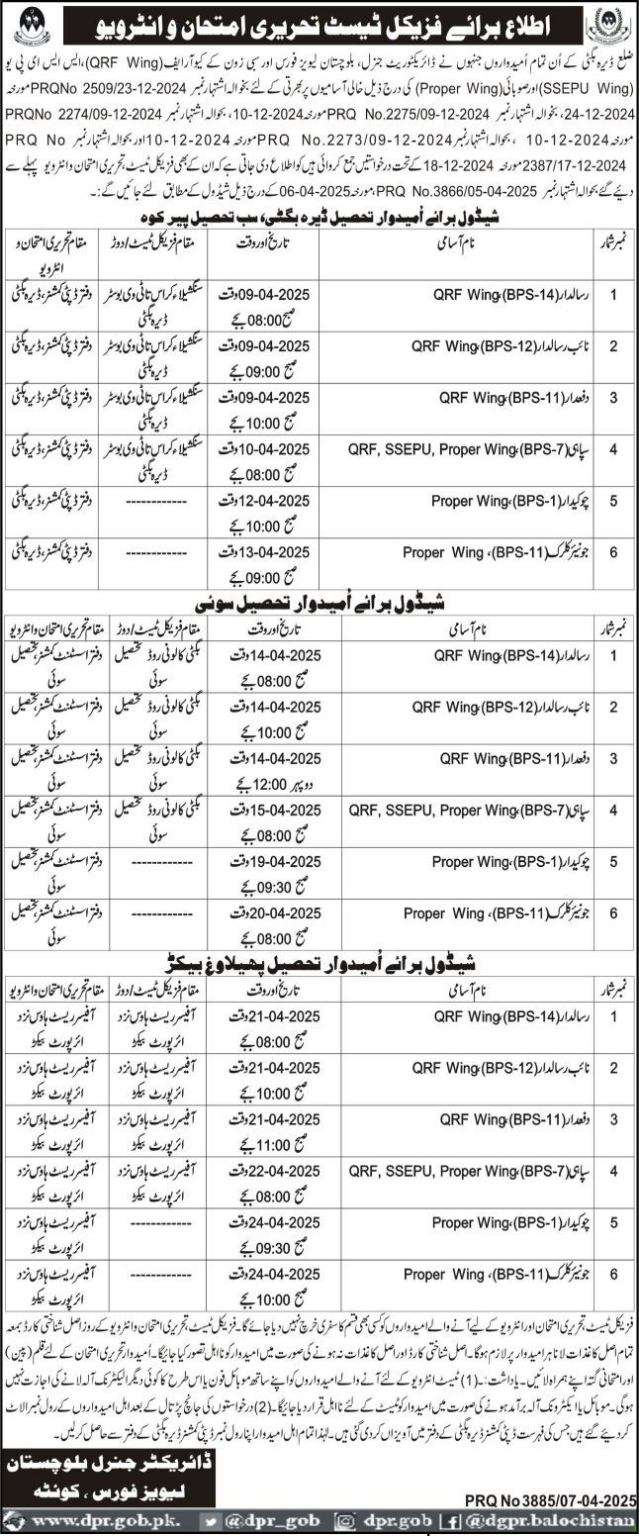 اطلاع برائے فزیکل ٹیسٹ تحریری امتحان و انٹرویو
ضلع ڈیرہ بگٹی کے اُن تمام امیدواروں جنہوں نے ڈائریکٹوریٹ جنرل، بلوچستان لیویز فورس اور سبی زون کے کیو آر ایف (QRF Wing)، ایس ایس ای پی یو
(SSEPU Wing) اور صوبائی (Proper Wing) کی درج ذیل خالی آسامیوں پر بھرتی کے لئے بحوالہ اشتہار نمبر PRQNo 2509/23-12-2024 مورخہ
24-12-2024، بحوالہ اشتہار نمبر PRQ No.2275/09-12-2024 مورخہ 10-12-2024، بحوالہ اشتہار نمبر PRQNo 2274/09-12-2024
مورخہ 10-12-2024، بحوالہ اشتہار نمبر PRQ No.2273/09-12-2024 مورخہ 10-12-2024 اور بحوالہ اشتہار نمبر PRQ No
2387/17-12-2024 مورخہ 18-12-2024 کے تحت درخواستیں جمع کروائی ہیں کو اطلاع دی جاتی ہے کہ ان کے بھی فزیکل ٹیسٹ، تحریری امتحان و انٹرویو پہلے سے
دیئے گئے بحوالہ اشتہار نمبر PRQ No.3866/05-04-2025، مورخہ 06-04-2025 کے درج ذیل شیڈول کے مطابق لئے جائیں گے:۔
شیڈول برائے اُمیدوار تحصیل ڈیرہ بگٹی، سب تحصیل پیر کوہ
نمبر شمار نام آسامی تاریخ اور وقت مقام فزیکل ٹیسٹ/دوڑ مقام تحریری امتحان و
انٹرویو
1 رسالدار (BPS-14)، QRF Wing 09-04-2025 وقت سنگسیلاء کراس تا ٹی وی بوسٹر دفتر ڈپٹی کمشنر، ڈیرہ بگٹی
صبح 08:00 بجے ڈیرہ بگٹی
2 نائب رسالدار (BPS-12)، QRF Wing 09-04-2025 وقت سنگسیلاء کراس تا ٹی وی بوسٹر دفتر ڈپٹی کمشنر، ڈیرہ بگٹی
صبح 09:00 بجے ڈیرہ بگٹی
3 دفعدار (BPS-11)، QRF Wing 09-04-2025 وقت سنگسیلاء کراس تا ٹی وی بوسٹر دفتر ڈپٹی کمشنر، ڈیرہ بگٹی
صبح 10:00 بجے ڈیرہ بگٹی
4 سپاہی (BPS-7)، QRF, SSEPU, Proper Wing 10-04-2025 وقت سنگسیلاء کراس تا ٹی وی بوسٹر دفتر ڈپٹی کمشنر، ڈیرہ بگٹی
صبح 08:00 بجے ڈیرہ بگٹی
5 چوکیدار (BPS-1)، Proper Wing 12-04-2025 وقت ------------ دفتر ڈپٹی کمشنر، ڈیرہ بگٹی
صبح 10:00 بجے
6 جونیئر کلرک (BPS-11)، Proper Wing 13-04-2025 وقت ------------ دفتر ڈپٹی کمشنر، ڈیرہ بگٹی
صبح 09:00 بجے
شیڈول برائے اُمیدوار تحصیل سوئی
نمبر شمار نام آسامی تاریخ اور وقت مقام فزیکل ٹیسٹ/دوڑ مقام تحریری امتحان و انٹرویو
1 رسالدار (BPS-14)، QRF Wing 14-04-2025 وقت بگٹی کالونی روڈ تحصیل دفتر اسسٹنٹ کمشنر، تحصیل
صبح 08:00 بجے سوئی سوئی
2 نائب رسالدار (BPS-12)، QRF Wing 14-04-2025 وقت بگٹی کالونی روڈ تحصیل دفتر اسسٹنٹ کمشنر، تحصیل
صبح 10:00 بجے سوئی سوئی
3 دفعدار (BPS-11)، QRF Wing 14-04-2025 وقت بگٹی کالونی روڈ تحصیل دفتر اسسٹنٹ کمشنر، تحصیل
دوپہر 12:00 بجے سوئی سوئی
4 سپاہی (BPS-7)، QRF, SSEPU, Proper Wing 15-04-2025 وقت بگٹی کالونی روڈ تحصیل دفتر اسسٹنٹ کمشنر، تحصیل
صبح 08:00 بجے سوئی سوئی
5 چوکیدار (BPS-1)، Proper Wing 19-04-2025 وقت ------------ دفتر اسسٹنٹ کمشنر، تحصیل
صبح 09:30 بجے سوئی
6 جونیئر کلرک (BPS-11)، Proper Wing 20-04-2025 وقت ------------ دفتر اسسٹنٹ کمشنر، تحصیل
صبح 08:00 بجے سوئی
شیڈول برائے اُمیدوار تحصیل پھیلاوغ بیکڑ
نمبر شمار نام آسامی تاریخ اور وقت مقام فزیکل ٹیسٹ/دوڑ مقام تحریری امتحان و انٹرویو
1 رسالدار (BPS-14)، QRF Wing 21-04-2025 وقت آفیسر ریسٹ ہاؤس نزد آفیسر ریسٹ ہاؤس نزد
صبح 08:00 بجے ائرپورٹ بیکڑ ائرپورٹ بیکڑ
2 نائب رسالدار (BPS-12)، QRF Wing 21-04-2025 وقت آفیسر ریسٹ ہاؤس نزد آفیسر ریسٹ ہاؤس نزد
صبح 10:00 بجے ائرپورٹ بیکڑ ائرپورٹ بیکڑ
3 دفعدار (BPS-11)، QRF Wing 21-04-2025 وقت آفیسر ریسٹ ہاؤس نزد آفیسر ریسٹ ہاؤس نزد
صبح 11:00 بجے ائرپورٹ بیکڑ ائرپورٹ بیکڑ
4 سپاہی (BPS-7)، QRF, SSEPU, Proper Wing 22-04-2025 وقت آفیسر ریسٹ ہاؤس نزد آفیسر ریسٹ ہاؤس نزد
صبح 08:00 بجے ائرپورٹ بیکڑ ائرپورٹ بیکڑ
5 چوکیدار (BPS-1)، Proper Wing 24-04-2025 وقت ------------ آفیسر ریسٹ ہاؤس نزد
صبح 09:30 بجے ائرپورٹ بیکڑ
6 جونیئر کلرک (BPS-11)، Proper Wing 24-04-2025 وقت ------------ آفیسر ریسٹ ہاؤس نزد
صبح 10:00 بجے ائرپورٹ بیکڑ
فزیکل ٹیسٹ، تحریری امتحان اور انٹرویو کے لیے آنے والے امیدواروں کو کسی بھی قسم کا سفری خرچ نہیں دیا جائے گا۔ فزیکل ٹیسٹ، تحریری امتحان و انٹرویو کے روز اصل شناختی کارڈ بمعہ
تمام اصل کاغذات لانا ہر امیدوار پر لازم ہوگا۔ اصل شناختی کارڈ اور اصل کاغذات نہ ہونے کی صورت میں امیدوار کو نااہل تصور کیا جائیگا۔ اُمیدوار تحریری امتحان کے لئے قلم (پین)
اور امتحانی گتہ اپنے ہمراہ لائیں۔ یاداشت:۔ (1) ٹیسٹ انٹرویو کے لئے آنے والے امیدواروں کو اپنے ساتھ موبائل فون یا اس طرح کا کوئی دیگر الیکٹرنک آلہ لانے کی اجازت نہیں
ہوگی۔ موبائل یا الیکٹرونک آلہ برآمد ہونے کی صورت میں امیدوار کو ٹیسٹ کے لئے نااہل قرار دیا جائیگا۔ (2) درخواستوں کی جانچ پڑتال کے بعد اہل امیدواروں کے رول نمبر الاٹ
کر دیئے گئے ہیں جس کی فہرست ڈپٹی کمشنر ڈیرہ بگٹی کے دفتر میں آویزاں کر دی گئی ہیں۔ لہٰذا تمام اہل امیدوار اپنا رول نمبر ڈپٹی کمشنر ڈیرہ بگٹی کے دفتر سے حاصل کر لیں۔
ڈائریکٹر جنرل بلوچستان
لیویز فورس، کوئٹہ
PRQ No 3885/07-04-2025
www.dpr.gob.pk. @dpr_gob dpr.gob @dgpr.balochistan